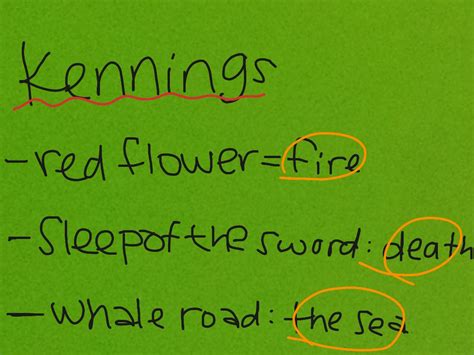 Kennings
-red flower=fire
-Sleep of the sword: death
-whale road: the sea